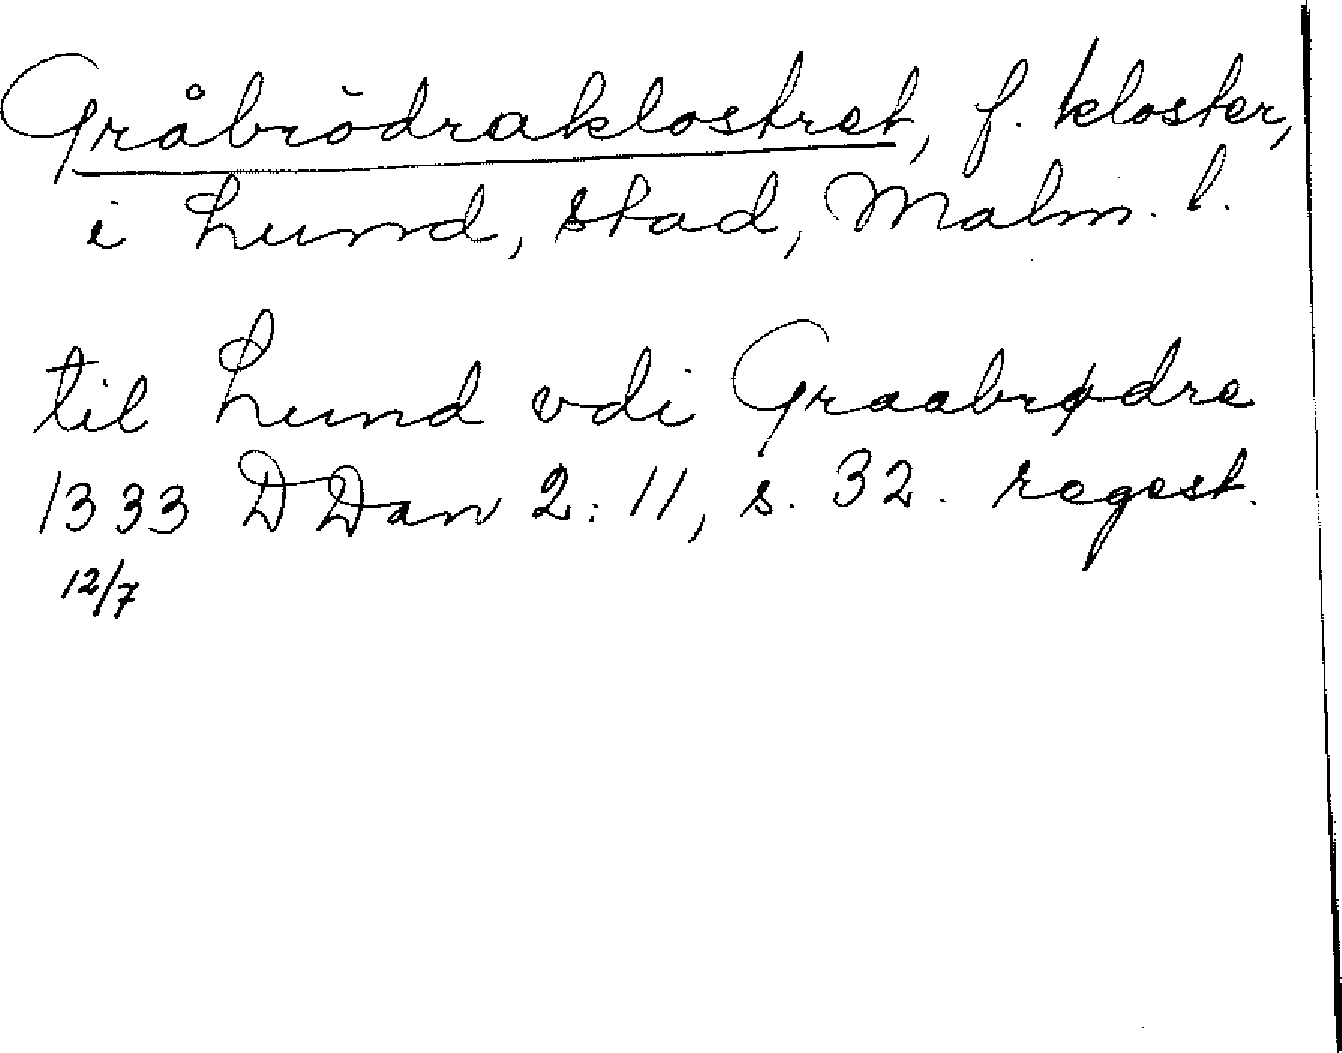 Gråbrödraklostret, f. kloster,
i Lund, stad, Malm. l.
til Lund vdi Graabrødre
1333 DDan 2:11, s. 32. regest.
12/7